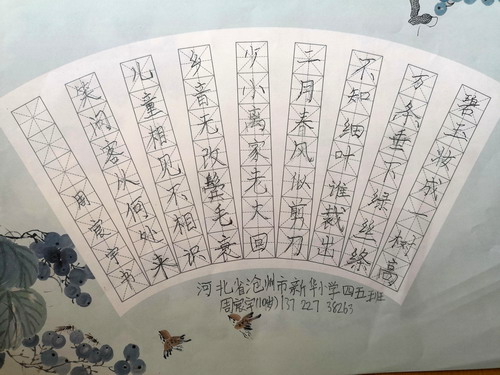 碧玉妆成一树高
万条垂下绿丝绦
不知细叶谁裁出
二月春风似剪刀
少小离家老大回
乡音无改鬓毛衰
儿童相见不相识
笑问客从何处来
周宸宇书
河北省沧州市新华小学四五班
周宸宇(10岁)137 227 38263